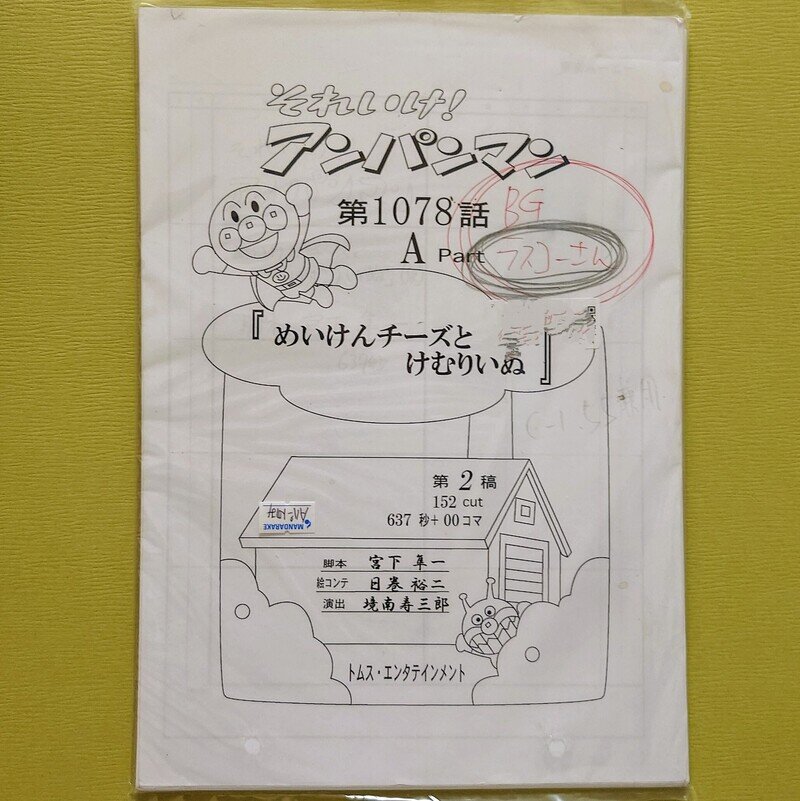 それいけ!
アンパンマン
第1078話
BG
A Part
ラスコーさん
『めいけんチーズと
けむりいぬ』
第2稿
152 cut
637 秒+00コマ
MANDARAKE
脚本 宮下 隼一
絵コンテ 日巻 裕二
演出 境南寿三郎
トムス・エンタテインメント